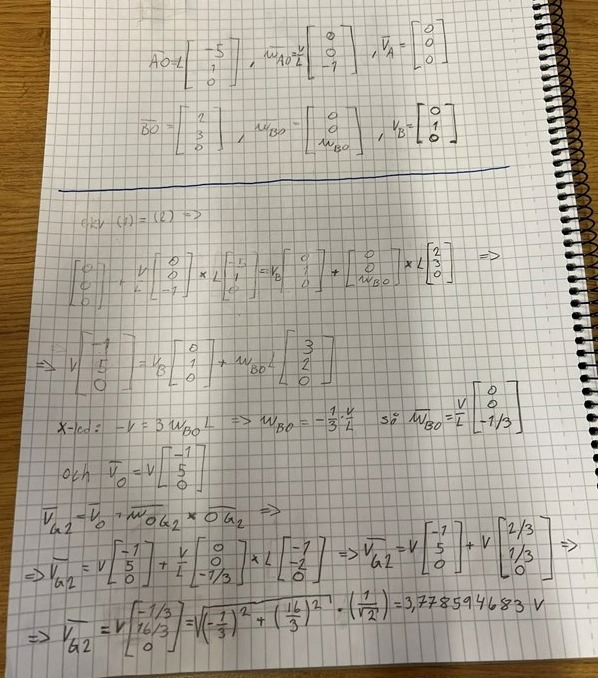 AO = L [-5 1 0] , w_AO = v/L [0 0 -1] , V_A = [0 0 0]
BO = [2 3 0] , w_BO = [0 0 w_BO] , V_B = [0 1 0]
ekv (1) = (2) =>
[0 0 0] + v/L [0 0 -1] × L = V_B [0 1 0] + [0 0 w_BO] × L [2 3 0] =>
=> v [-1 5 0] = V_B [0 1 0] + w_BO L [3 2 0]
x-led: -v = 3 w_BO L => w_BO = -1/3 · v/L så w_BO = v/L [0 0 -1/3]
och V_O = v [-1 5 0]
V_G2 = V_O + w_OG2 × OG2 =>
=> V_G2 = v [-1 5 0] + v/L [0 0 -1/3] × L [-1 -2 0] => V_G2 = v [-1 5 0] + v [2/3 1/3 0] =>
=> V_G2 = v [-1/3 16/3 0] = √((-1/3)^2 + (16/3)^2) · (1/√2) = 3,778594683 v